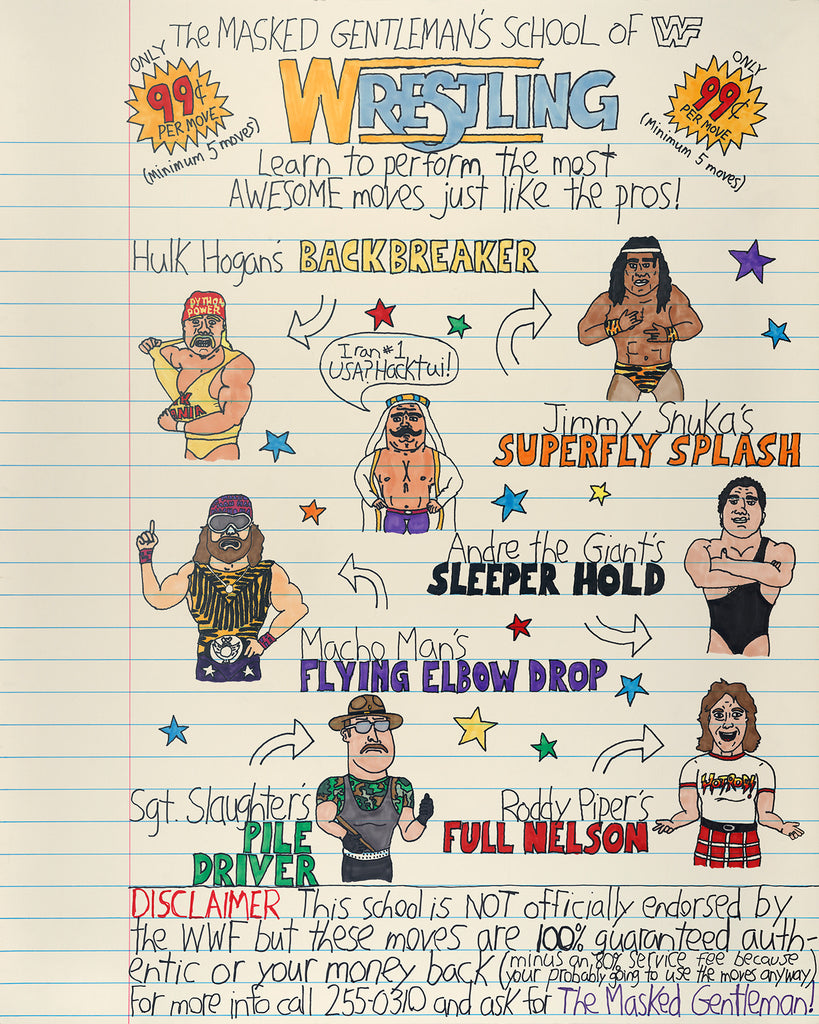 The MASKED GENTLEMAN'S SCHOOL OF WF
ONLY
99¢
PER MOVE
(minimum 5 moves)
WRESTLING
ONLY
99¢
PER MOVE
(minimum 5 moves)
Learn to perform the most
AWESOME moves just like the pros!
Hulk Hogan's BACKBREAKER
PYTHON
POWER
K
MANIA
Iran #1
USA? Hacktui!
Jimmy Snuka's
SUPERFLY SPLASH
Andre the Giant's
SLEEPER HOLD
Macho Man's
FLYING ELBOW DROP
Sgt. Slaughter's
PILE
DRIVER
Roddy Piper's
FULL NELSON
HOTROD!
DISCLAIMER This school is NOT officially endorsed by
the WWF but these moves are 100% guaranteed auth-
entic or your money back (minus an 80% service fee because
your probably going to use the moves anyway)
For more info call 255-0310 and ask for The Masked Gentleman!